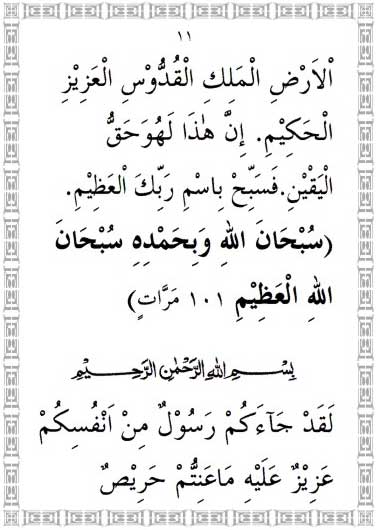 ١١
اْلاَرْضِ الْمَلِكِ الْقُدُّوْسِ الْعَزِيْزِ
الْحَكِيْمِ. اِنَّ هٰذَا لَهُوَ حَقُّ
الْيَقْيْنِ. فَسَبِّحْ بِاسْمِ رَبِّكَ الْعَظِيْمِ.
(سُبْحَانَ اللهِ وَبِحَمْدِهِ سُبْحَانَ
اللهِ الْعَظِيْمِ ١٠١ مَرَّاتٍ)
بِسْمِ اللهِ الرَّحْمٰنِ الرَّحِيْمِ
لَقَدْ جَآءَكُمْ رَسُوْلٌ مِنْ اَنْفُسِكُمْ
عَزِيْزٌ عَلَيْهِ مَاعَنِتُّمْ حَرِيْصٌ